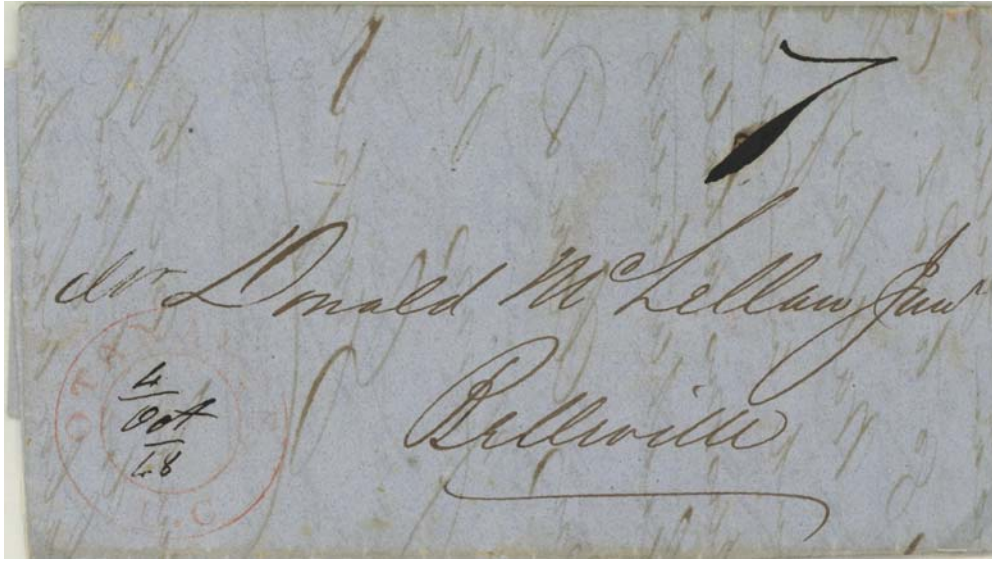 7
Mr Donald McLellan Junr
Belleville
4
Oct
48